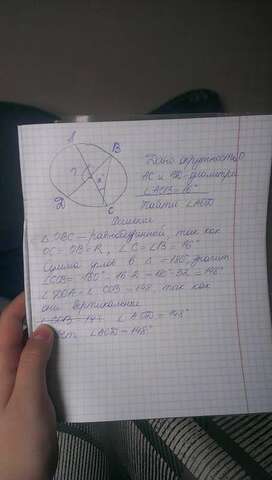 A
B
?
Д
C
Дано окружность O
AC и BD диаметри
∠ACB = 16°
Найти ∠AOD
Решение
△ OBC — равнобедренный, так как
OC = OB = R, ∠C = ∠B = 16°
Сумма углов в △ = 180° значит
∠COB = 180° - 16·2 = 180° - 32 = 148°
∠DOA = ∠COB = 148, так как
они вертикальные
∠AOD = 148°
Ответ ∠AOD = 148°